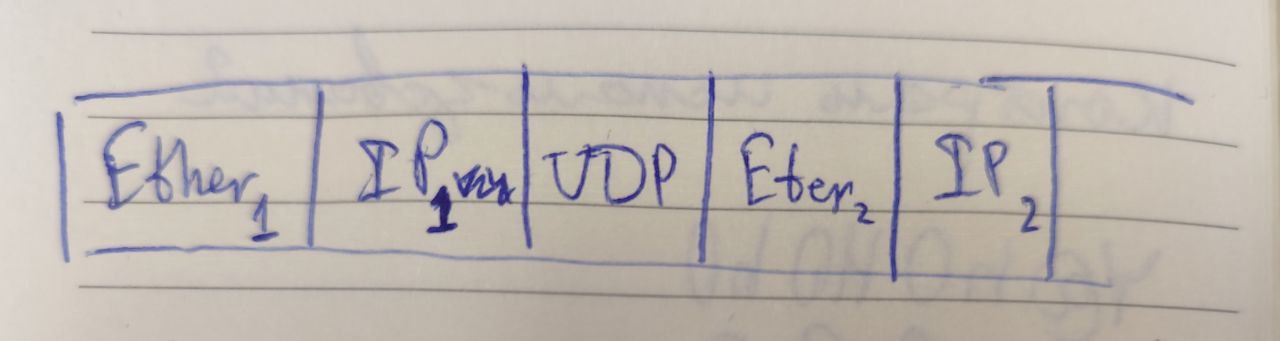 Ether₁ IP₁ UDP Eter₂ IP₂